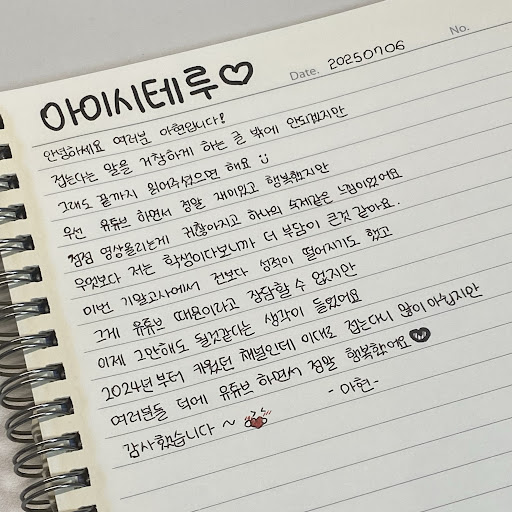 아이시테루♡
Date. 20250706 No.
안녕하세요 여러분 아현입니다!
접는다는 말을 거창하게 하는 글 밖에 안되겠지만
그래도 끝까지 읽어주셨으면 해요 :)
우선 유튜브 하면서 정말 재미있고 행복했지만
점점 영상올리는게 귀찮아지고 하나의 숙제같은 느낌이었어요
무엇보다 저는 학생이다보니까 더 부담이 큰것 같아요.
이번 기말고사에서 전보다 성적이 떨어지기도 했고
그게 유튜브 때문이라고 장담할 수 없지만
이제 그만해도 될것같다는 생각이 들었어요
2024년부터 키웠던 채널인데 이대로 접는다니 많이 아쉽지만
여러분들 덕에 유튜브 하면서 정말 행복했어요♥
감사했습니다 ~
-아현-